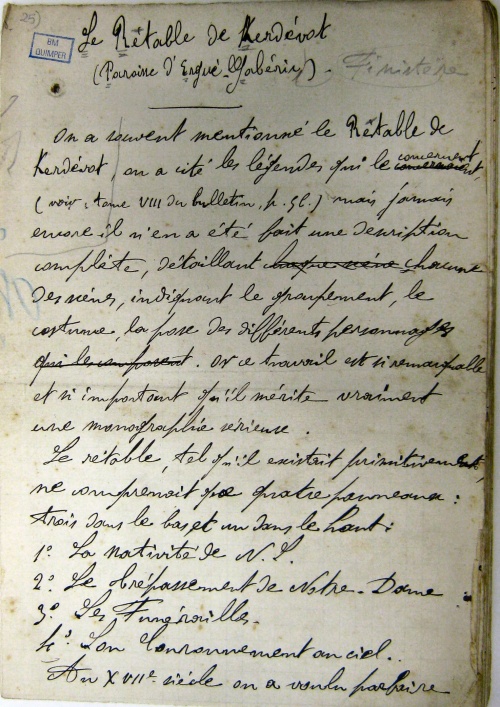 25)
BM
QUIMPER
Le Rétable de Kerdévot
(Paroisse d'Ergué Gabéric). Finistère
On a souvent mentionné le Rétable de
Kerdévot, on a cité les légendes qui le concernent
(voir, tome VIII du bulletin, p. ) mais jamais
encore il n'en a été fait une description
complète, détaillant chacune
des scènes, indiquant le groupement, le
costume, la pose des différents personnages
qui les composent. Or ce travail est si remarquable
et si important qu'il mérite vraiment
une monographie sérieuse.
Le rétable, tel qu'il existait primitivement,
ne comprenait que quatre panneaux :
trois dans le bas et un dans le haut :
1º. La nativité de N. S.
2º. Le trépassement de Notre-Dame
3º. Les Funérailles.
4º. Son Couronnement au ciel.
Au XVIIe siècle on a voulu parfaire